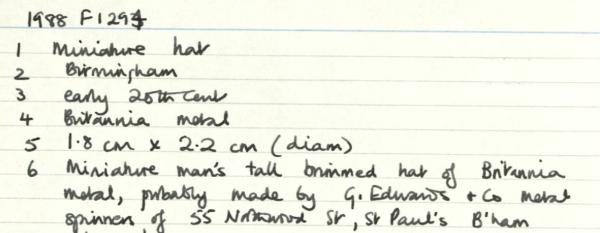 1988 F1294
1 Miniature hat
2 Birmingham
3 early 20th Cent
4 Britannia metal
5 1.8 cm x 2.2 cm (diam)
6 Miniature man's tall brimmed hat of Britannia
metal, probably made by G. Edwards + Co metal
spinners of 55 Northwood St, St Paul's B'ham